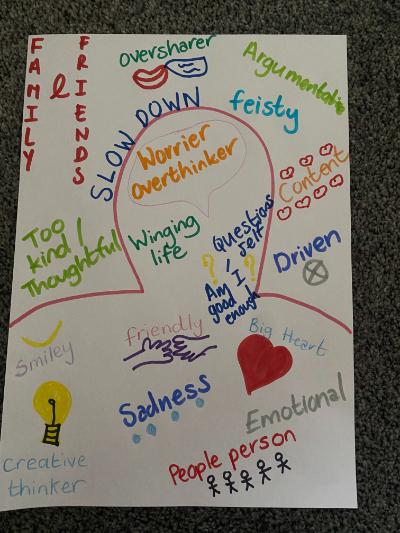 FAMILY
&
FRIENDS
oversharer
Argumentative
SLOW DOWN
feisty
Worrier
overthinker
Content
Too
kind /
Thoughtful
Winging
life
Questions
self
/
? Am I ?
good
enough
Driven
Smiley
friendly
Big Heart
Sadness
Emotional
Creative
thinker
People person